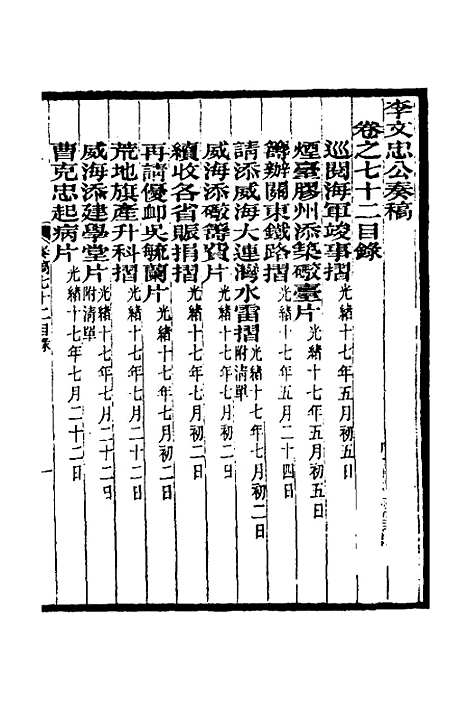 李文忠公奏稿
卷之七十二目錄
巡閱海軍竣事摺 光緒十七年五月初五日
煙臺膠州添築礮臺片 光緒十七年五月初五日
籌辦關東鐵路摺 光緒十七年五月二十四日
請添威海大連灣水雷摺 附清單 光緒十七年七月初二日
威海添礮籌費片 光緒十七年七月初二日
續收各省賑捐摺 光緒十七年七月初二日
再請優卹吳毓蘭片 光緒十七年七月初二日
荒地旗產升科摺 光緒十七年七月二十二日
威海添建學堂片 附清單 光緒十七年七月二十二日
曹克忠起病片 光緒十七年七月二十二日
奏稿七十二目錄
一